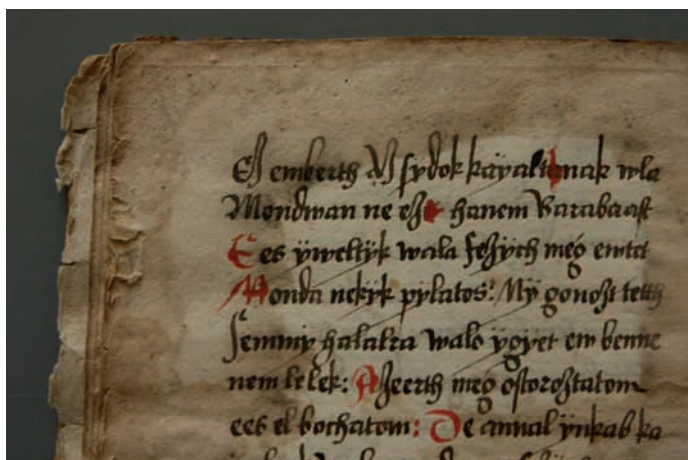 Ez emberth A sydok kayaltanak wla
Mondwan ne ezt hanem Barabaast
Ees ÿweltÿk wala feszÿch meg ewtet
Monda nekÿk pÿlatos: Mÿ gonoszt tetth
semmy halalra walo ÿgÿet ew benne
nem lelek: Azeerth meg ostorosztatom
ees el bochatom: De annal ÿnkab ka